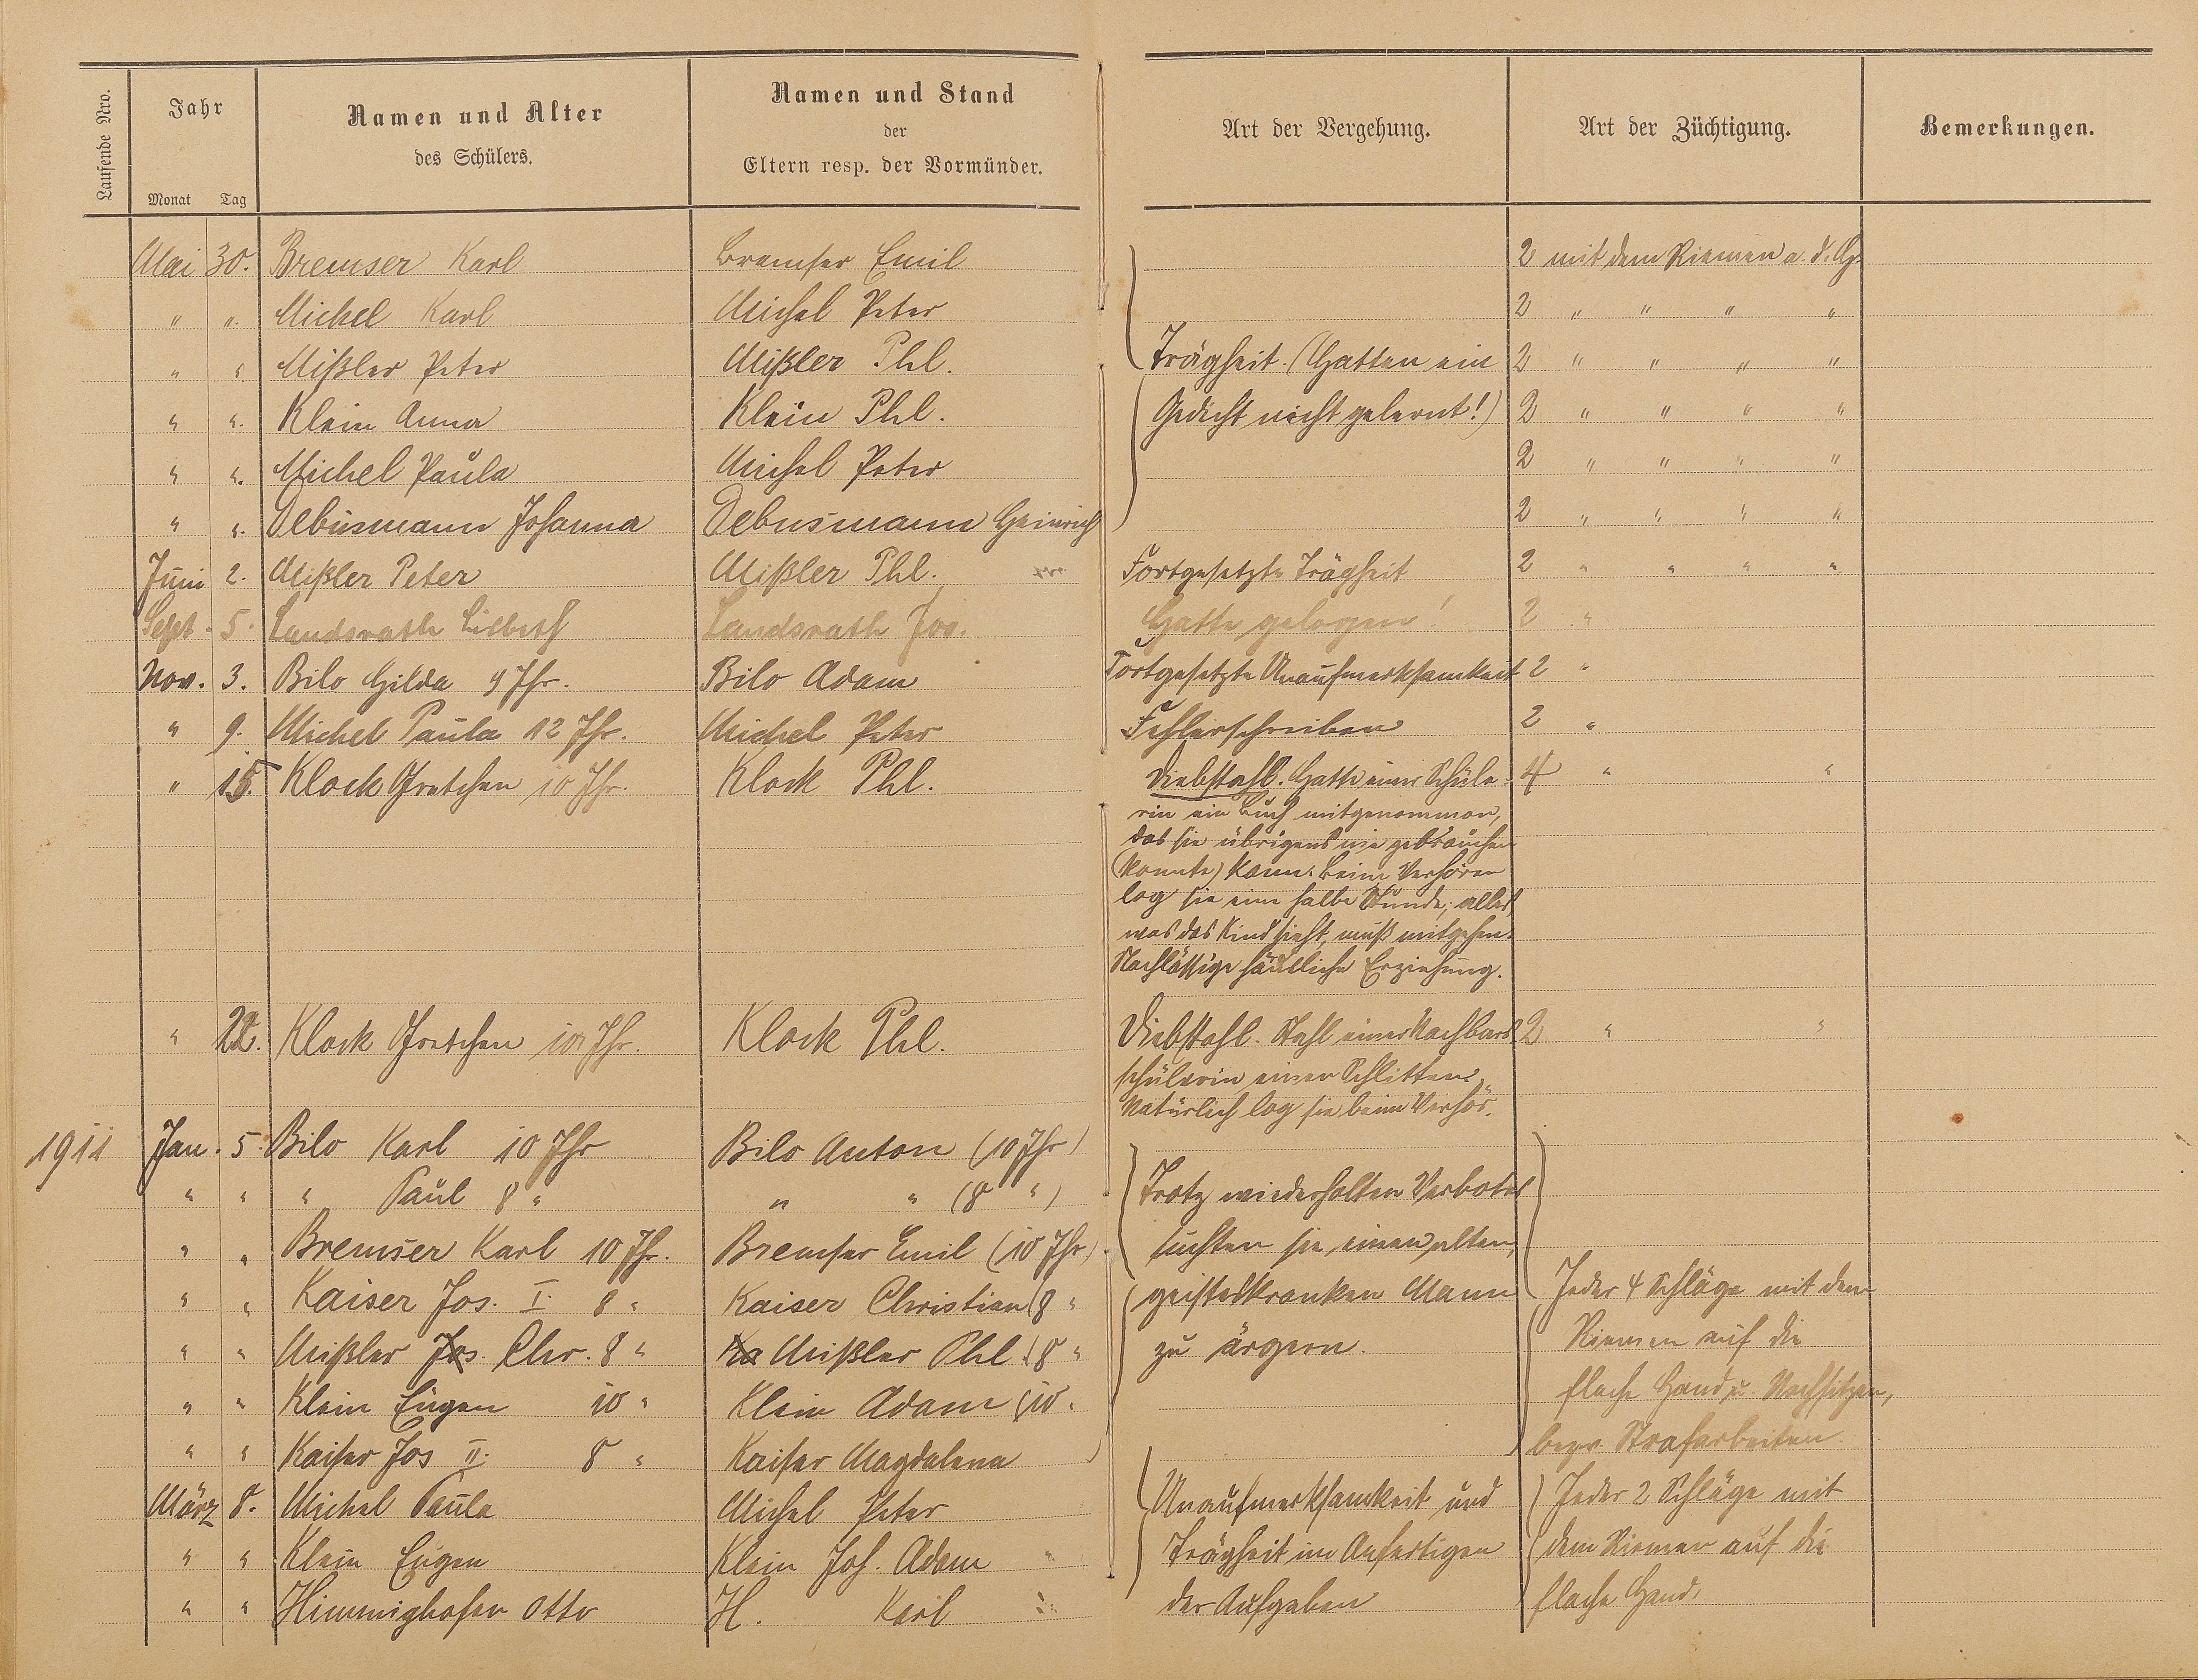 Laufende Nro.
Jahr
Monat Tag
Namen und Alter
des Schülers.
Namen und Stand
der
Eltern resp. der Vormünder.
Art der Vergehung.
Art der Züchtigung.
Bemerkungen.
Mai 30. Bremser Karl Bremser Emil 2 mit dem Riemen a. d. H.
" ". Michel Karl Michel Peter 2 " " " "
" ". Mißler Peter Mißler Phl. Trägheit. (Hatten ein 2 " " " "
" ". Klein Anna Klein Phl. Gedicht nicht gelernt!) 2 " " " "
" ". Michel Paula Michel Peter 2 " " " "
" ". Debusmann Johanna Debusmann Heinrich 2 " " " "
Juni 2. Mißler Peter Mißler Phl. Fortgesetzte Trägheit 2 " " " "
Sept. 5. Landsrath Landsrath Jos. Hatte gelogen! 2 "
Nov. 3. Bilo Hilda 9 Jhr. Bilo Adam Fortgesetzte Unaufmerksamkeit 2 "
" 9. Michel Paula 12 Jhr. Michel Peter Fehlerschreiben 2 "
" 15. Klock Gretchen 10 Jhr. Klock Phl. Diebstahl. Hatte einer Schüle- 4 " "
rin ein Buch mitgenommen,
das sie übrigens nie gebrauchen
(konnte) kann. Beim Verhören
log sie eine halbe Stunde; alles,
was das Kind sieht, muß mitgehen.
Nachlässige häusliche Erziehung.
" 22. Klock Gretchen 10 Jhr. Klock Phl. Diebstahl. Stahl einer Nachbars- 2 " "
schülerin einen Schlitten.
Natürlich log sie beim Verhör.
1911 Jan. 5. Bilo Karl 10 Jhr Bilo Anton (10 Jhr)
" " " Paul 8 " " " (8 ") Trotz wiederholten Verbotes
" " Bremser Karl 10 Jhr. Bremser Emil (10 Jhr) suchten sie einen alten,
" " Kaiser Jos. I. 8 " Kaiser Christian (8 " geisteskranken Mann Jeder 4 Schläge mit dem
" " Mißler Jos. Chr. 8 " Ka Mißler Phl. (8 " zu ärgern. Riemen auf die
" " Klein Eugen 10 " Klein Adam (10 " flache Hand u. Nachsitzen,
" " Kaiser Jos II. 8 " Kaiser Magdalena bezw. Strafarbeiten
März 8. Michel Paula Michel Peter Unaufmerksamkeit und Jeder 2 Schläge mit
" " Klein Eugen Klein Joh. Adam Trägheit im Anfertigen dem Riemen auf die
" " Himmighofen Otto H. Karl der Aufgaben flache Hand.